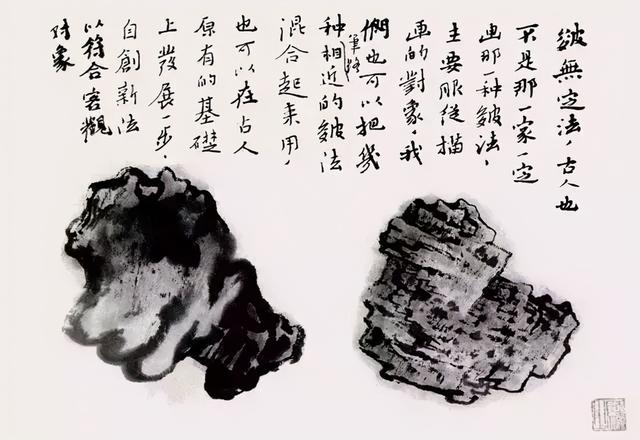 皴無定法，古人也
不是那一家一定
画那一种皴法，
主要服從描
画的對象，我
們也可以把幾
筆路
种相近的皴法
混合起来用，
也可以在古人
原有的基礎
上發展一步，
自創新法
以符合客觀
对象